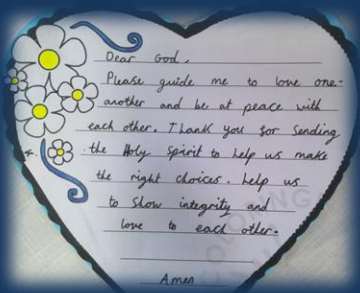 Dear God,
Please guide me to love one-
another and be at peace with
each other. Thank you for sending
the Holy Spirit to help us make
the right choices. help us
to Show integrity and
love to each other.
Amen